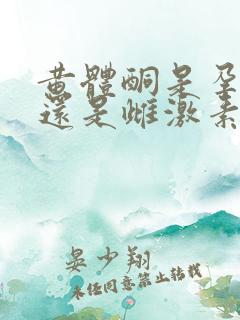 黄體酮是孕
還是雌激素
晏少翔
未经同意禁止转载